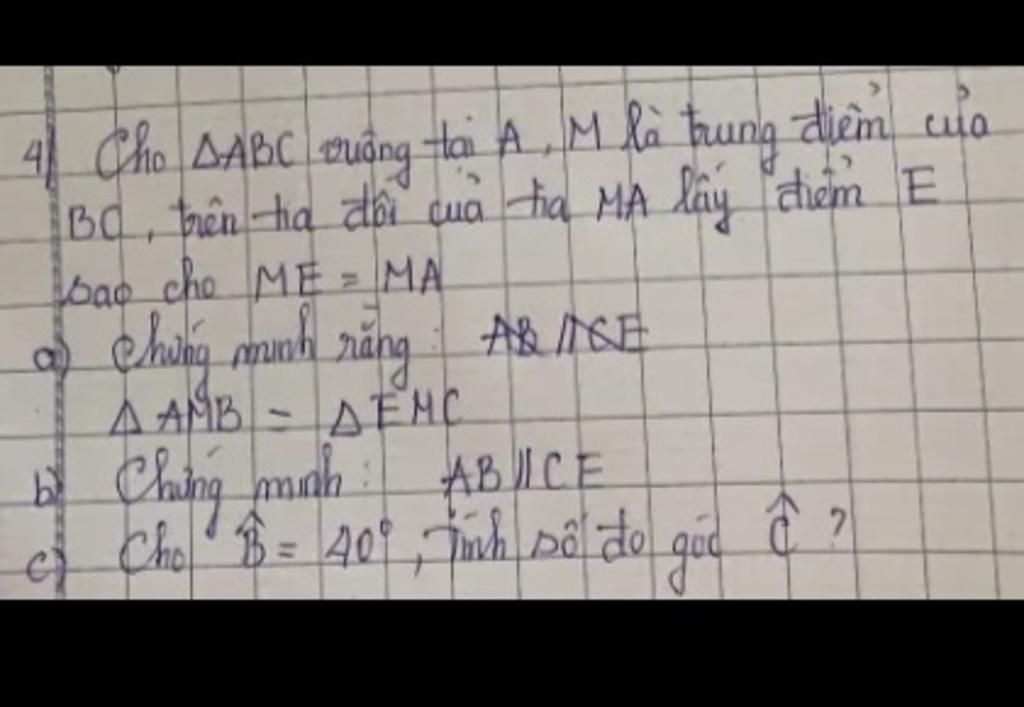 4) Cho ΔABC vuông tại A, M là trung điểm của
BC, trên tia đối của tia MA lấy điểm E
sao cho ME = MA
a) Chứng minh rằng: AB // CE
ΔAMB = ΔEMC
b) Chứng minh: AB // CE
c) Cho B̂ = 40°, Tính số đo góc Ĉ ?